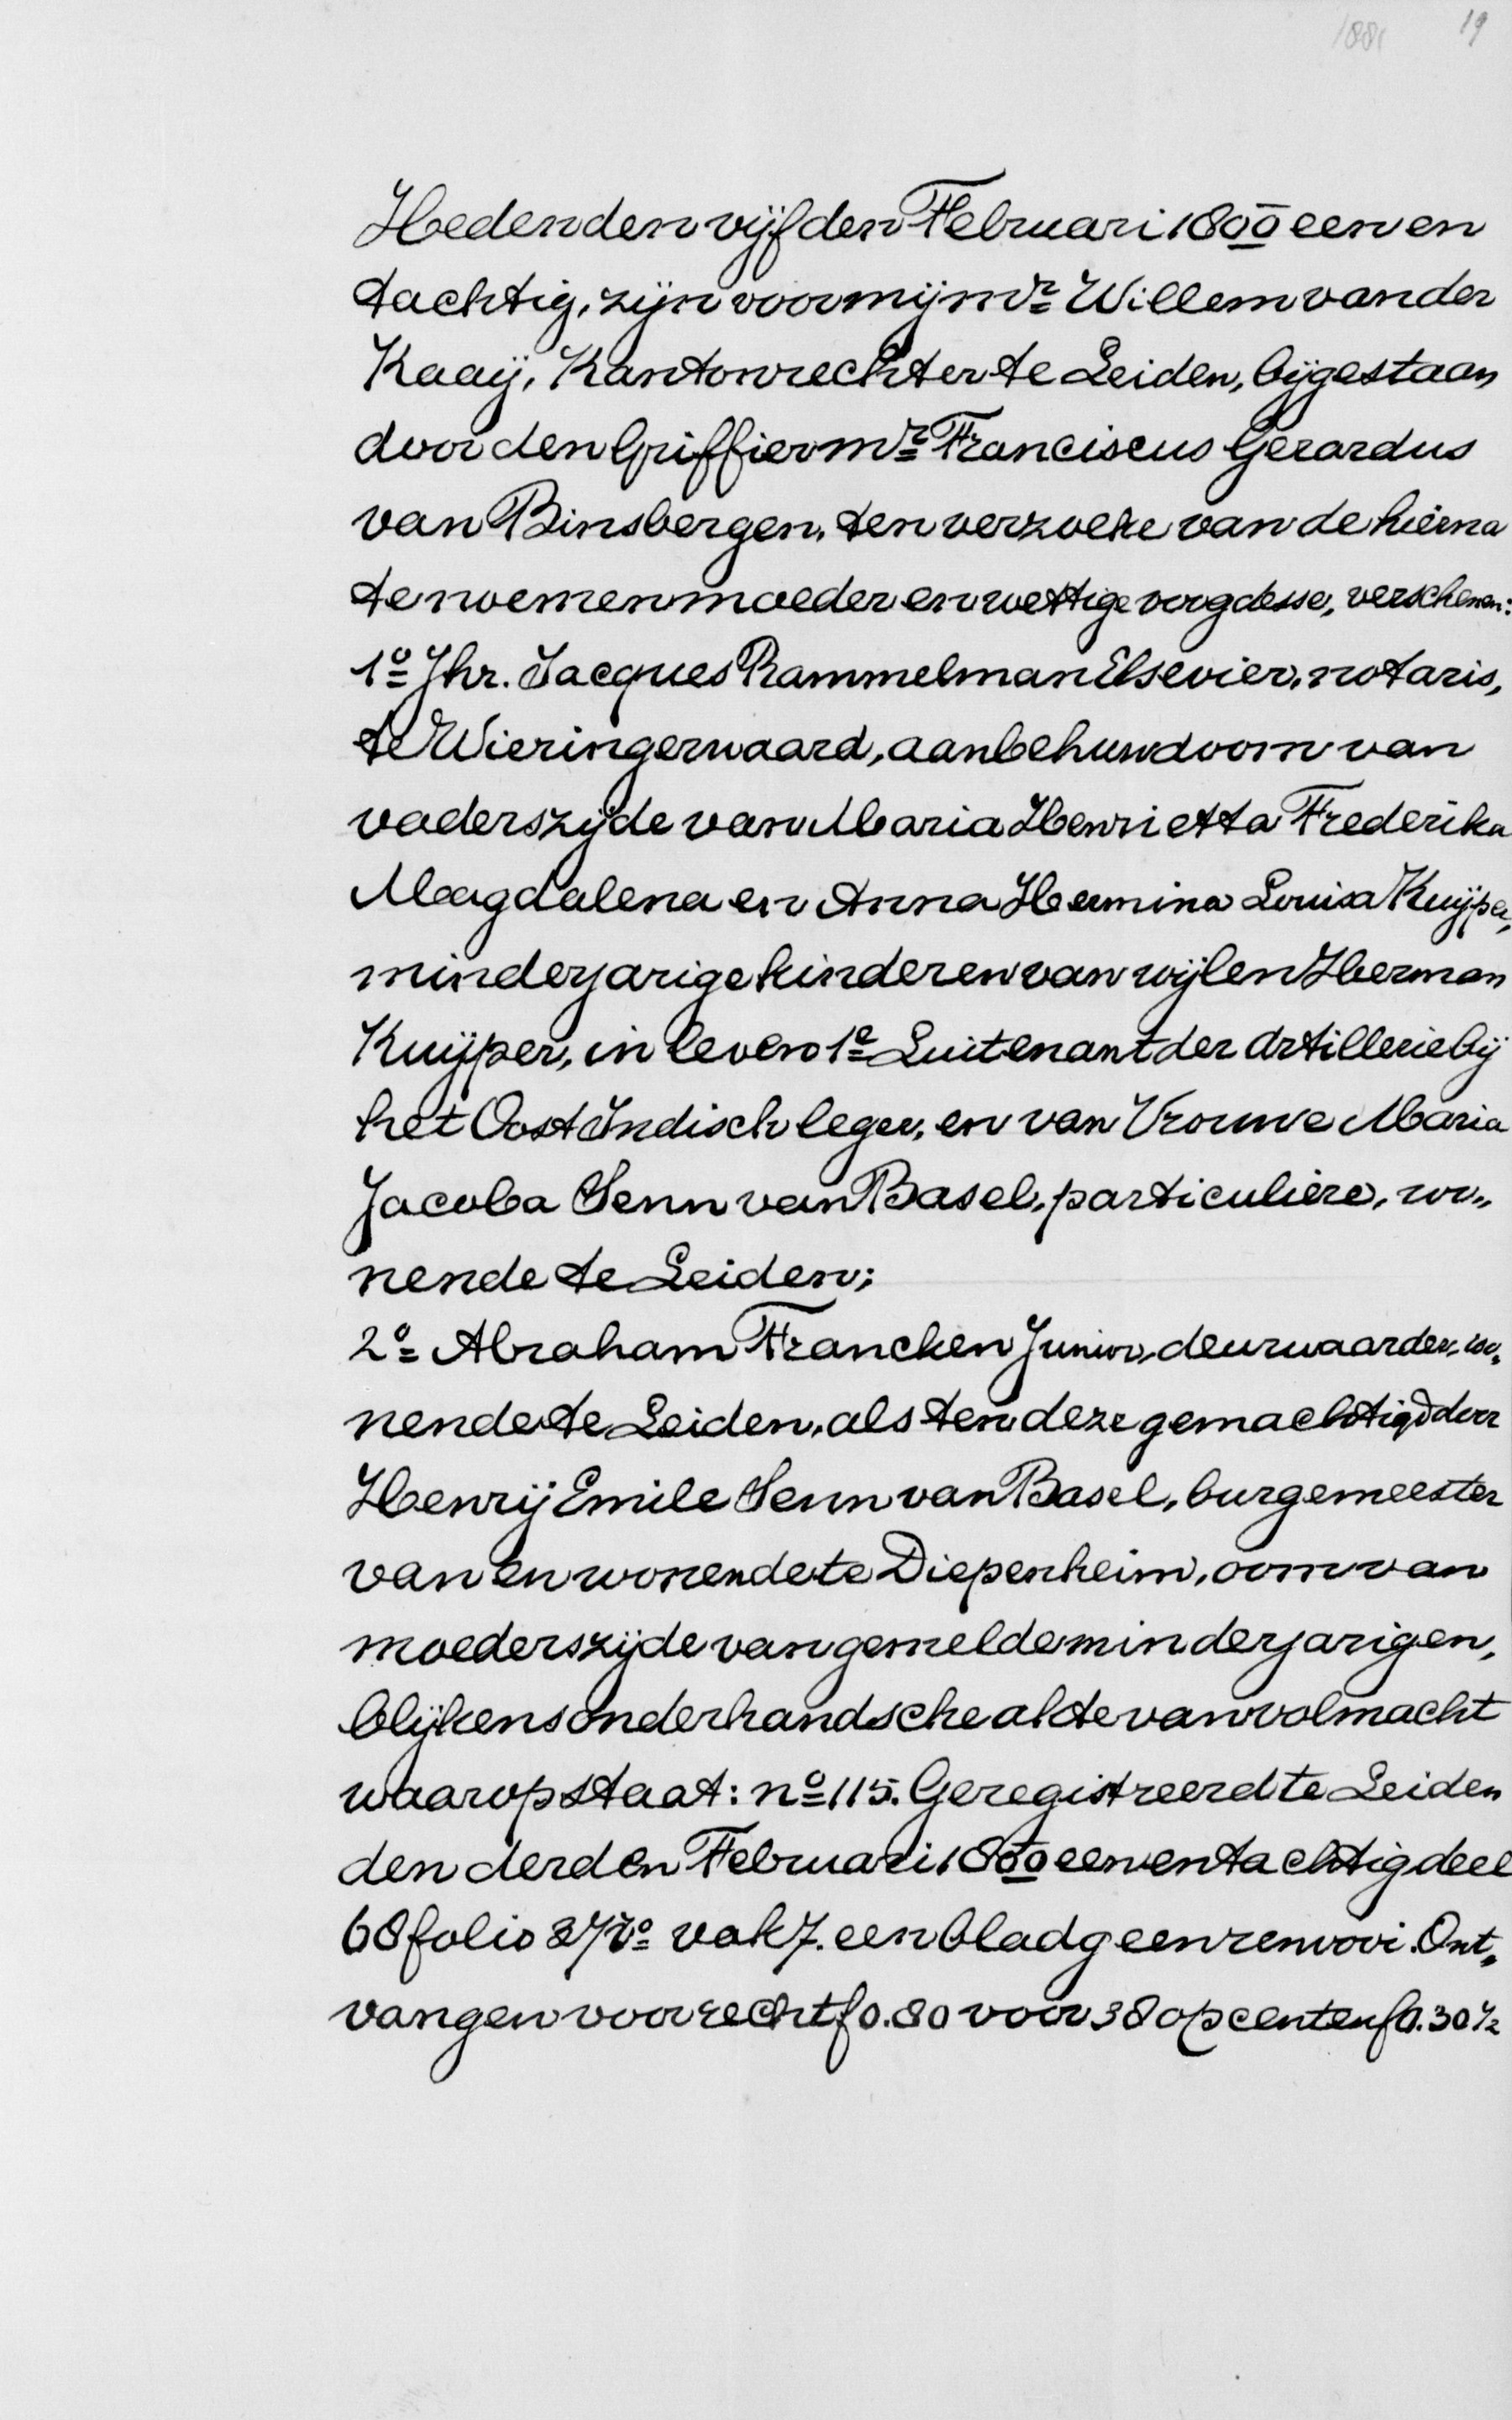 1881 19
Heden den vijfden Februari 1800 een en
tachtig, zijn voor mij Mr Willem van der
Kaaij, Kantonrechter te Leiden, bijgestaan
door den Griffier Mr Franciscus Gerardus
van Binsbergen, ten verzoeke van de hierna
te noemen moeder en wettige voogdesse, verschenen:
1o Jhr. Jacques Rammelman Elsevier, notaris,
te Wieringerwaard, aanbehuwdoom van
vaderszijde van Maria Henrietta Frederika
Magdalena en Anna Hermina Louisa Kuijper,
minderjarige kinderen van wijlen Herman
Kuijper, in leven 1e Luitenant der Artillerie bij
het Oost Indisch leger, en van Vrouwe Maria
Jacoba Senn van Basel, particuliere, wo„
nende te Leiden;
2o Abraham Francken Junior, deurwaarder, wo„
nende te Leiden, als ten deze gemachtigd door
Henrij Emile Senn van Basel, burgemeester
van en wonende te Diepenheim, oom van
moederszijde van gemelde minderjarigen,
blijkens onderhandsche akte van volmacht
waarop staat: no 115. Geregistreerd te Leiden
den derden Februari 1800 een en tachtig deel
68 folio 87 vo vak 7. een blad geen renvooi. Ont„
vangen voor recht f 0.80 voor 38 opcenten f 0.30½